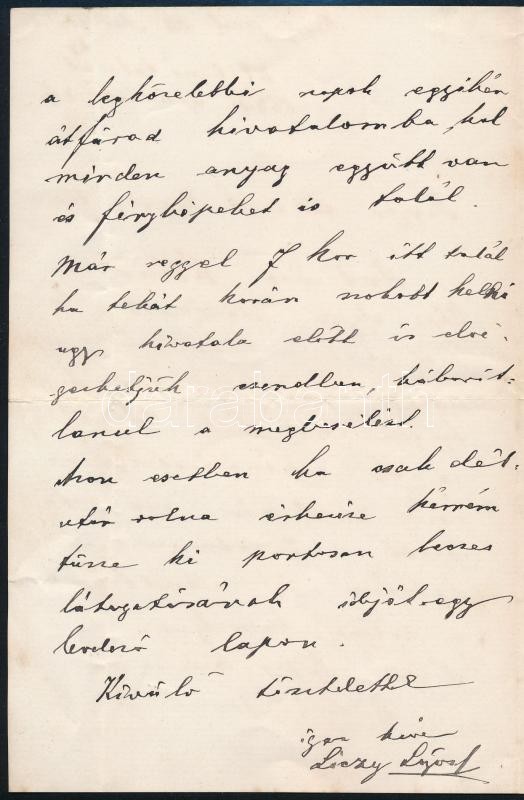 a legközelebbi napok egyikén
átfárad hivatalomba, hol
minden anyag együtt van
és fényképeket is talál.
Már reggel 7 kor itt talál
ha tehát korán szokott kelni
ugy hivatala előtt is elvé-
gezhetjük csendben, háborit-
lanul a megbeszélést.
Azon esetben ha csak dél-
után volna érkezése kérném
tüzze ki pontosan becses
látogatásának idejét egy
levelező lapon.
Kiváló tisztelettel
igaz hive
Lóczy Lajos
darabanth